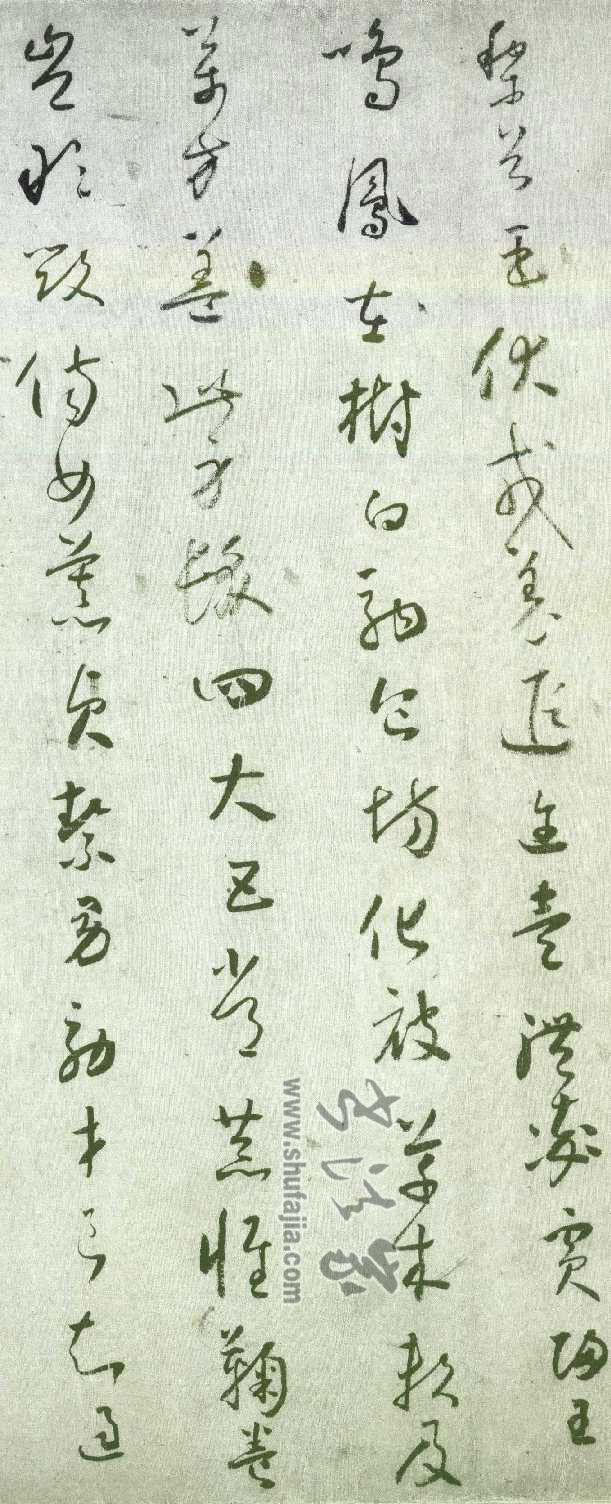 黎首臣伏戎羌遐迩壹體率賓歸王
鳴鳳在樹白駒食場化被草木賴及
萬方蓋此身髮四大五常恭惟鞠養
豈敢毀傷女慕貞絜男效才良知過
书法家
www.shufajia.com